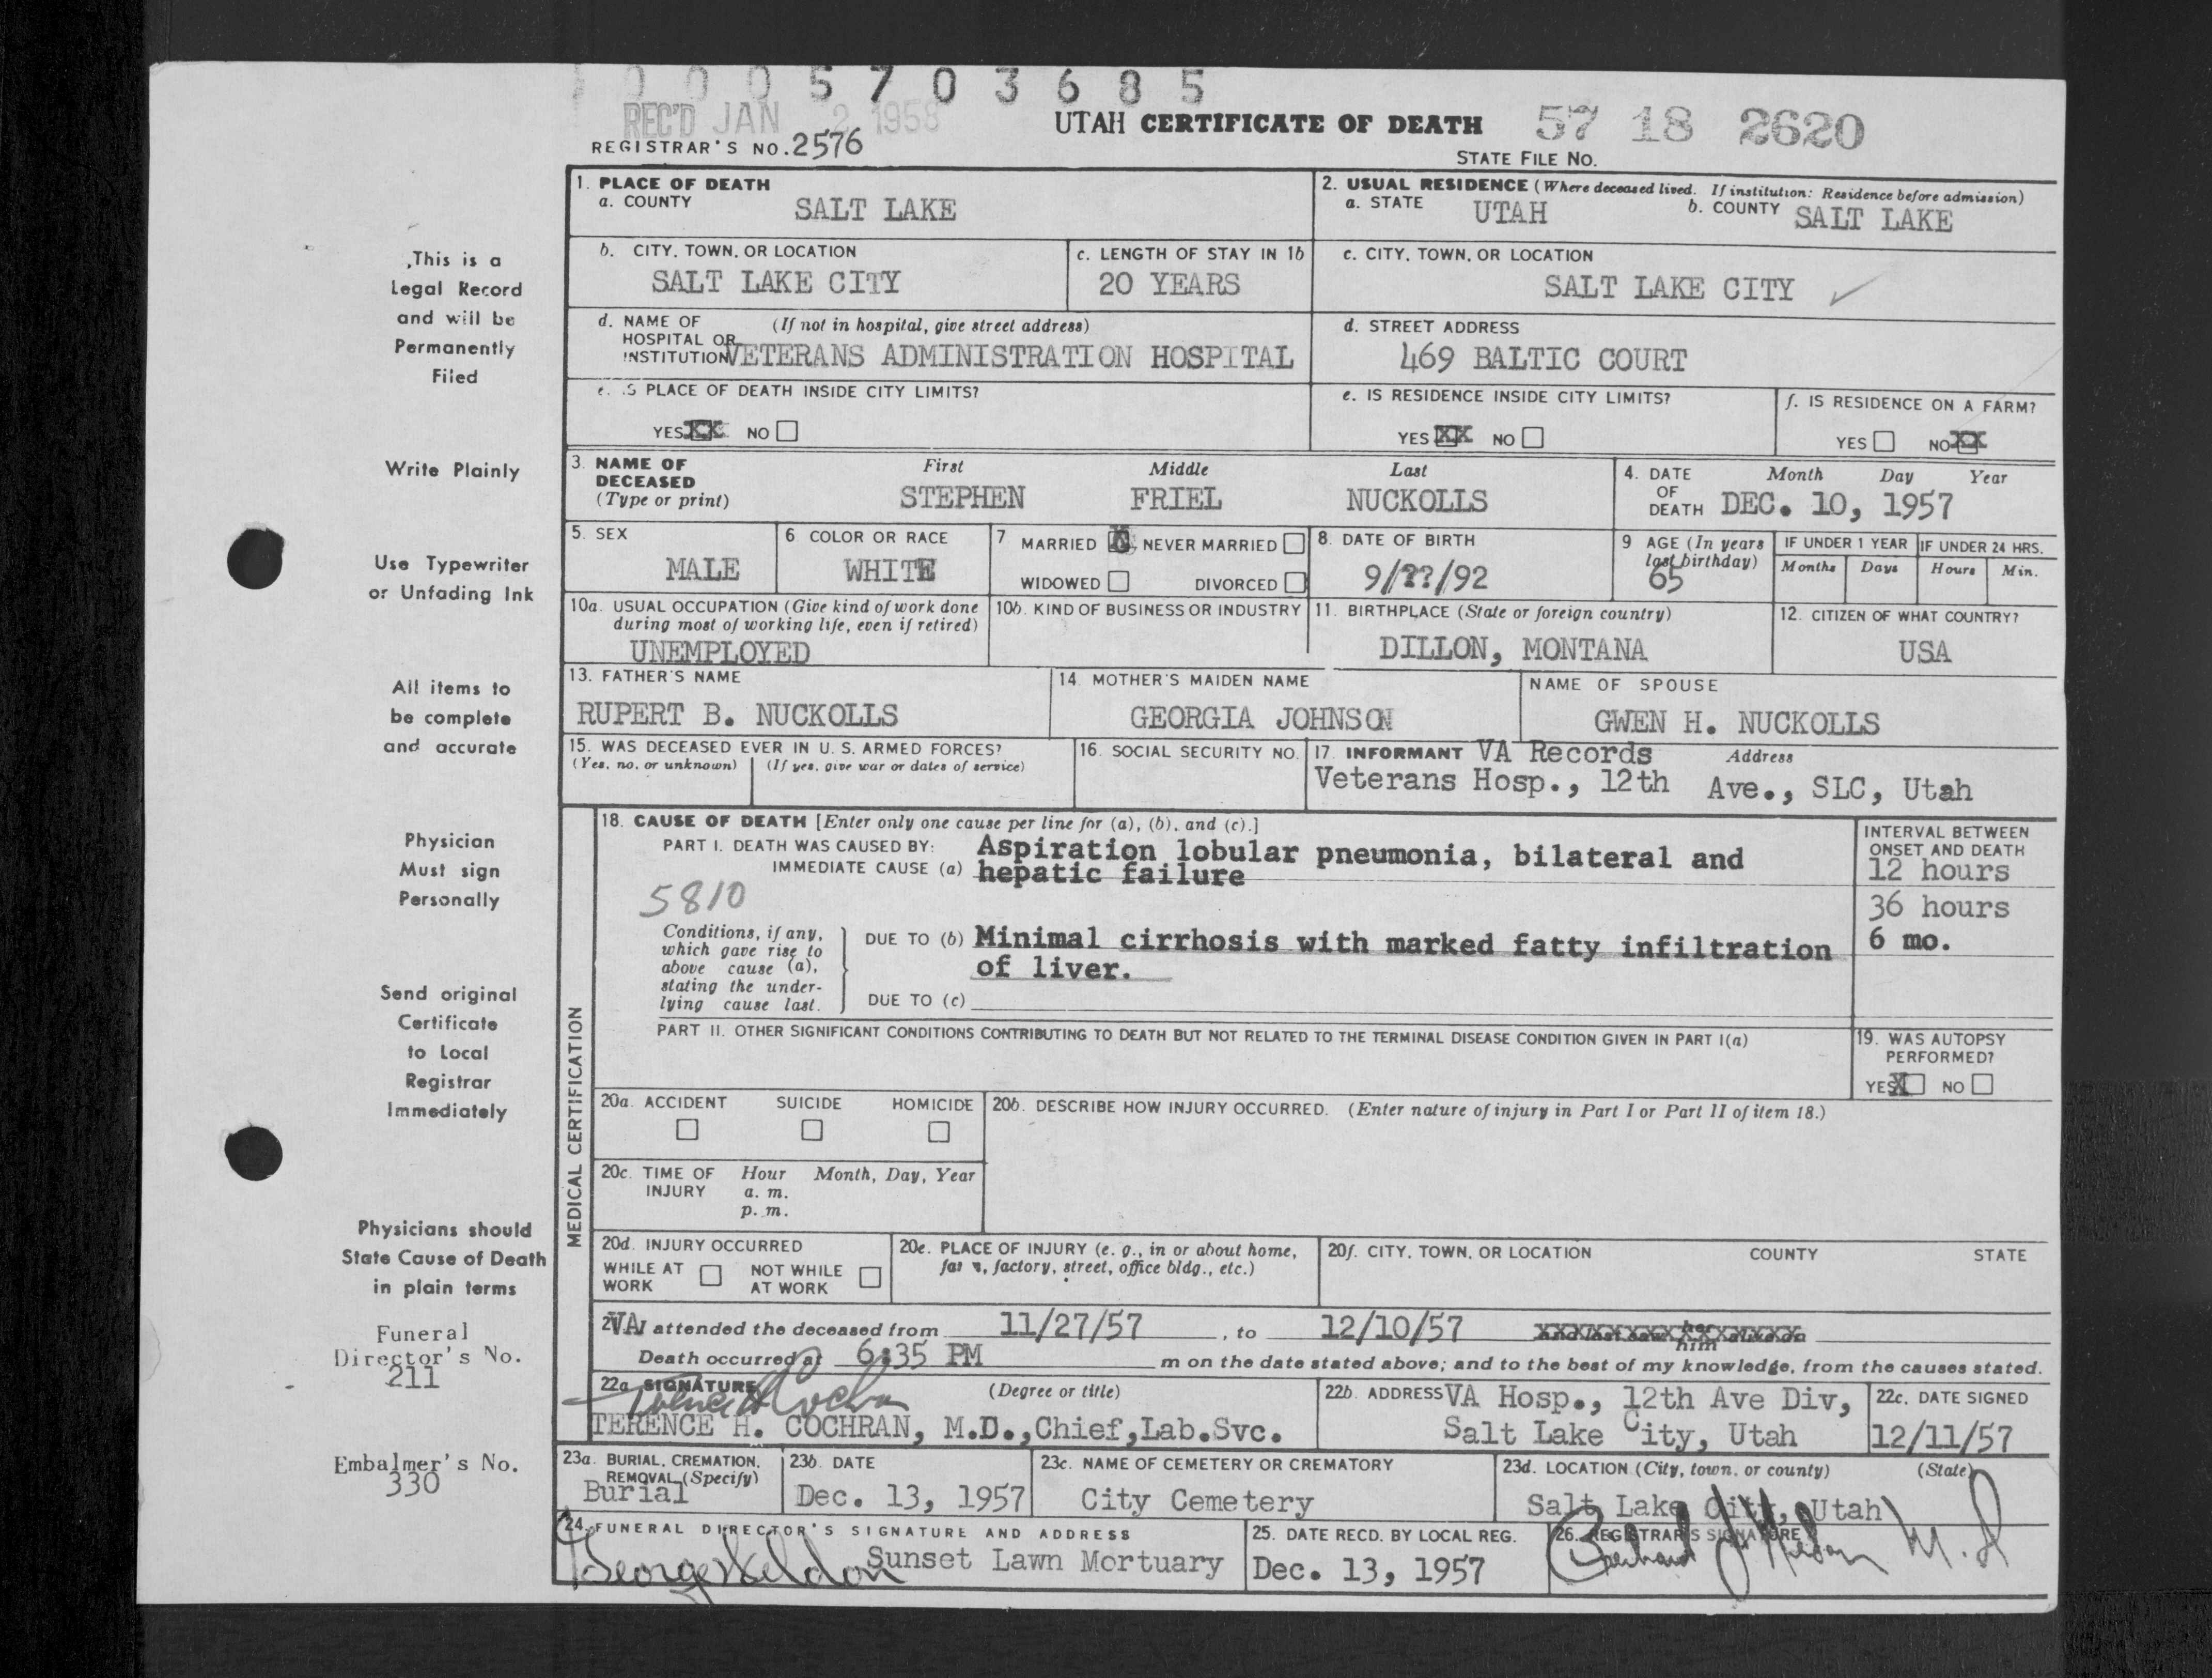 0005703685
REC'D JAN 2 1958
UTAH CERTIFICATE OF DEATH
57 18 2620
REGISTRAR'S NO. 2576
STATE FILE No.
1. PLACE OF DEATH
a. COUNTY
SALT LAKE
2. USUAL RESIDENCE (Where deceased lived. If institution: Residence before admission)
a. STATE UTAH b. COUNTY SALT LAKE
b. CITY, TOWN, OR LOCATION
SALT LAKE CITY
c. LENGTH OF STAY IN 1b
20 YEARS
c. CITY, TOWN, OR LOCATION
SALT LAKE CITY
d. NAME OF (If not in hospital, give street address)
HOSPITAL OR
INSTITUTION VETERANS ADMINISTRATION HOSPITAL
d. STREET ADDRESS
469 BALTIC COURT
e. IS PLACE OF DEATH INSIDE CITY LIMITS?
YES XX NO
e. IS RESIDENCE INSIDE CITY LIMITS?
YES XX NO
f. IS RESIDENCE ON A FARM?
YES NO XX
3. NAME OF DECEASED
(Type or print)
First Middle Last
STEPHEN FRIEL NUCKOLLS
4. DATE OF DEATH
Month Day Year
DEC. 10, 1957
5. SEX
MALE
6 COLOR OR RACE
WHITE
7 MARRIED X NEVER MARRIED
WIDOWED DIVORCED
8. DATE OF BIRTH
9/??/92
9 AGE (In years last birthday)
65
IF UNDER 1 YEAR
Months Days
IF UNDER 24 HRS.
Hours Min.
10a. USUAL OCCUPATION (Give kind of work done
during most of working life, even if retired)
UNEMPLOYED
10b. KIND OF BUSINESS OR INDUSTRY
11. BIRTHPLACE (State or foreign country)
DILLON, MONTANA
12. CITIZEN OF WHAT COUNTRY?
USA
13. FATHER'S NAME
RUPERT B. NUCKOLLS
14. MOTHER'S MAIDEN NAME
GEORGIA JOHNSON
NAME OF SPOUSE
GWEN H. NUCKOLLS
15. WAS DECEASED EVER IN U. S. ARMED FORCES?
(Yes, no, or unknown) (If yes, give war or dates of service)
16. SOCIAL SECURITY NO.
17. INFORMANT VA Records Address
Veterans Hosp., 12th Ave., SLC, Utah
MEDICAL CERTIFICATION
18. CAUSE OF DEATH [Enter only one cause per line for (a), (b), and (c).]
PART I. DEATH WAS CAUSED BY:
IMMEDIATE CAUSE (a)
Aspiration lobular pneumonia, bilateral and
hepatic failure
5810
Conditions, if any,
which gave rise to
above cause (a),
stating the under-
lying cause last.
DUE TO (b) Minimal cirrhosis with marked fatty infiltration
of liver.
DUE TO (c)
INTERVAL BETWEEN
ONSET AND DEATH
12 hours
36 hours
6 mo.
PART II. OTHER SIGNIFICANT CONDITIONS CONTRIBUTING TO DEATH BUT NOT RELATED TO THE TERMINAL DISEASE CONDITION GIVEN IN PART I(a)
19. WAS AUTOPSY
PERFORMED?
YES X NO
20a. ACCIDENT SUICIDE HOMICIDE
20b. DESCRIBE HOW INJURY OCCURRED. (Enter nature of injury in Part I or Part II of item 18.)
20c. TIME OF INJURY Hour Month, Day, Year
a. m.
p. m.
20d. INJURY OCCURRED
WHILE AT WORK NOT WHILE AT WORK
20e. PLACE OF INJURY (e. g., in or about home,
farm, factory, street, office bldg., etc.)
20f. CITY, TOWN, OR LOCATION COUNTY STATE
VA attended the deceased from 11/27/57, to 12/10/57
Death occurred at 6:35 PM m on the date stated above; and to the best of my knowledge, from the causes stated.
22a. SIGNATURE (Degree or title)
Terence H Cochran
TERENCE H. COCHRAN, M.D.,Chief,Lab.Svc.
22b. ADDRESS VA Hosp., 12th Ave Div,
Salt Lake City, Utah
22c. DATE SIGNED
12/11/57
23a. BURIAL, CREMATION,
REMOVAL (Specify)
Burial
23b. DATE
Dec. 13, 1957
23c. NAME OF CEMETERY OR CREMATORY
City Cemetery
23d. LOCATION (City, town, or county) (State)
Salt Lake City, Utah
24. FUNERAL DIRECTOR'S SIGNATURE AND ADDRESS
Sunset Lawn Mortuary
25. DATE RECD. BY LOCAL REG.
Dec. 13, 1957
26. REGISTRAR'S SIGNATURE
M.D
This is a
Legal Record
and will be
Permanently
Filed
Write Plainly
Use Typewriter
or Unfading Ink
All items to
be complete
and accurate
Physician
Must sign
Personally
Send original
Certificate
to Local
Registrar
Immediately
Physicians should
State Cause of Death
in plain terms
Funeral
Director's No.
211
Embalmer's No.
330